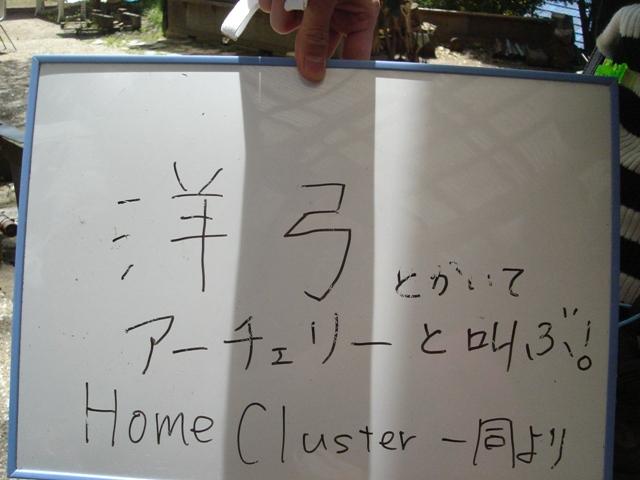 洋弓とかいて
アーチェリーと叫ぶ!
Home Cluster 一同より